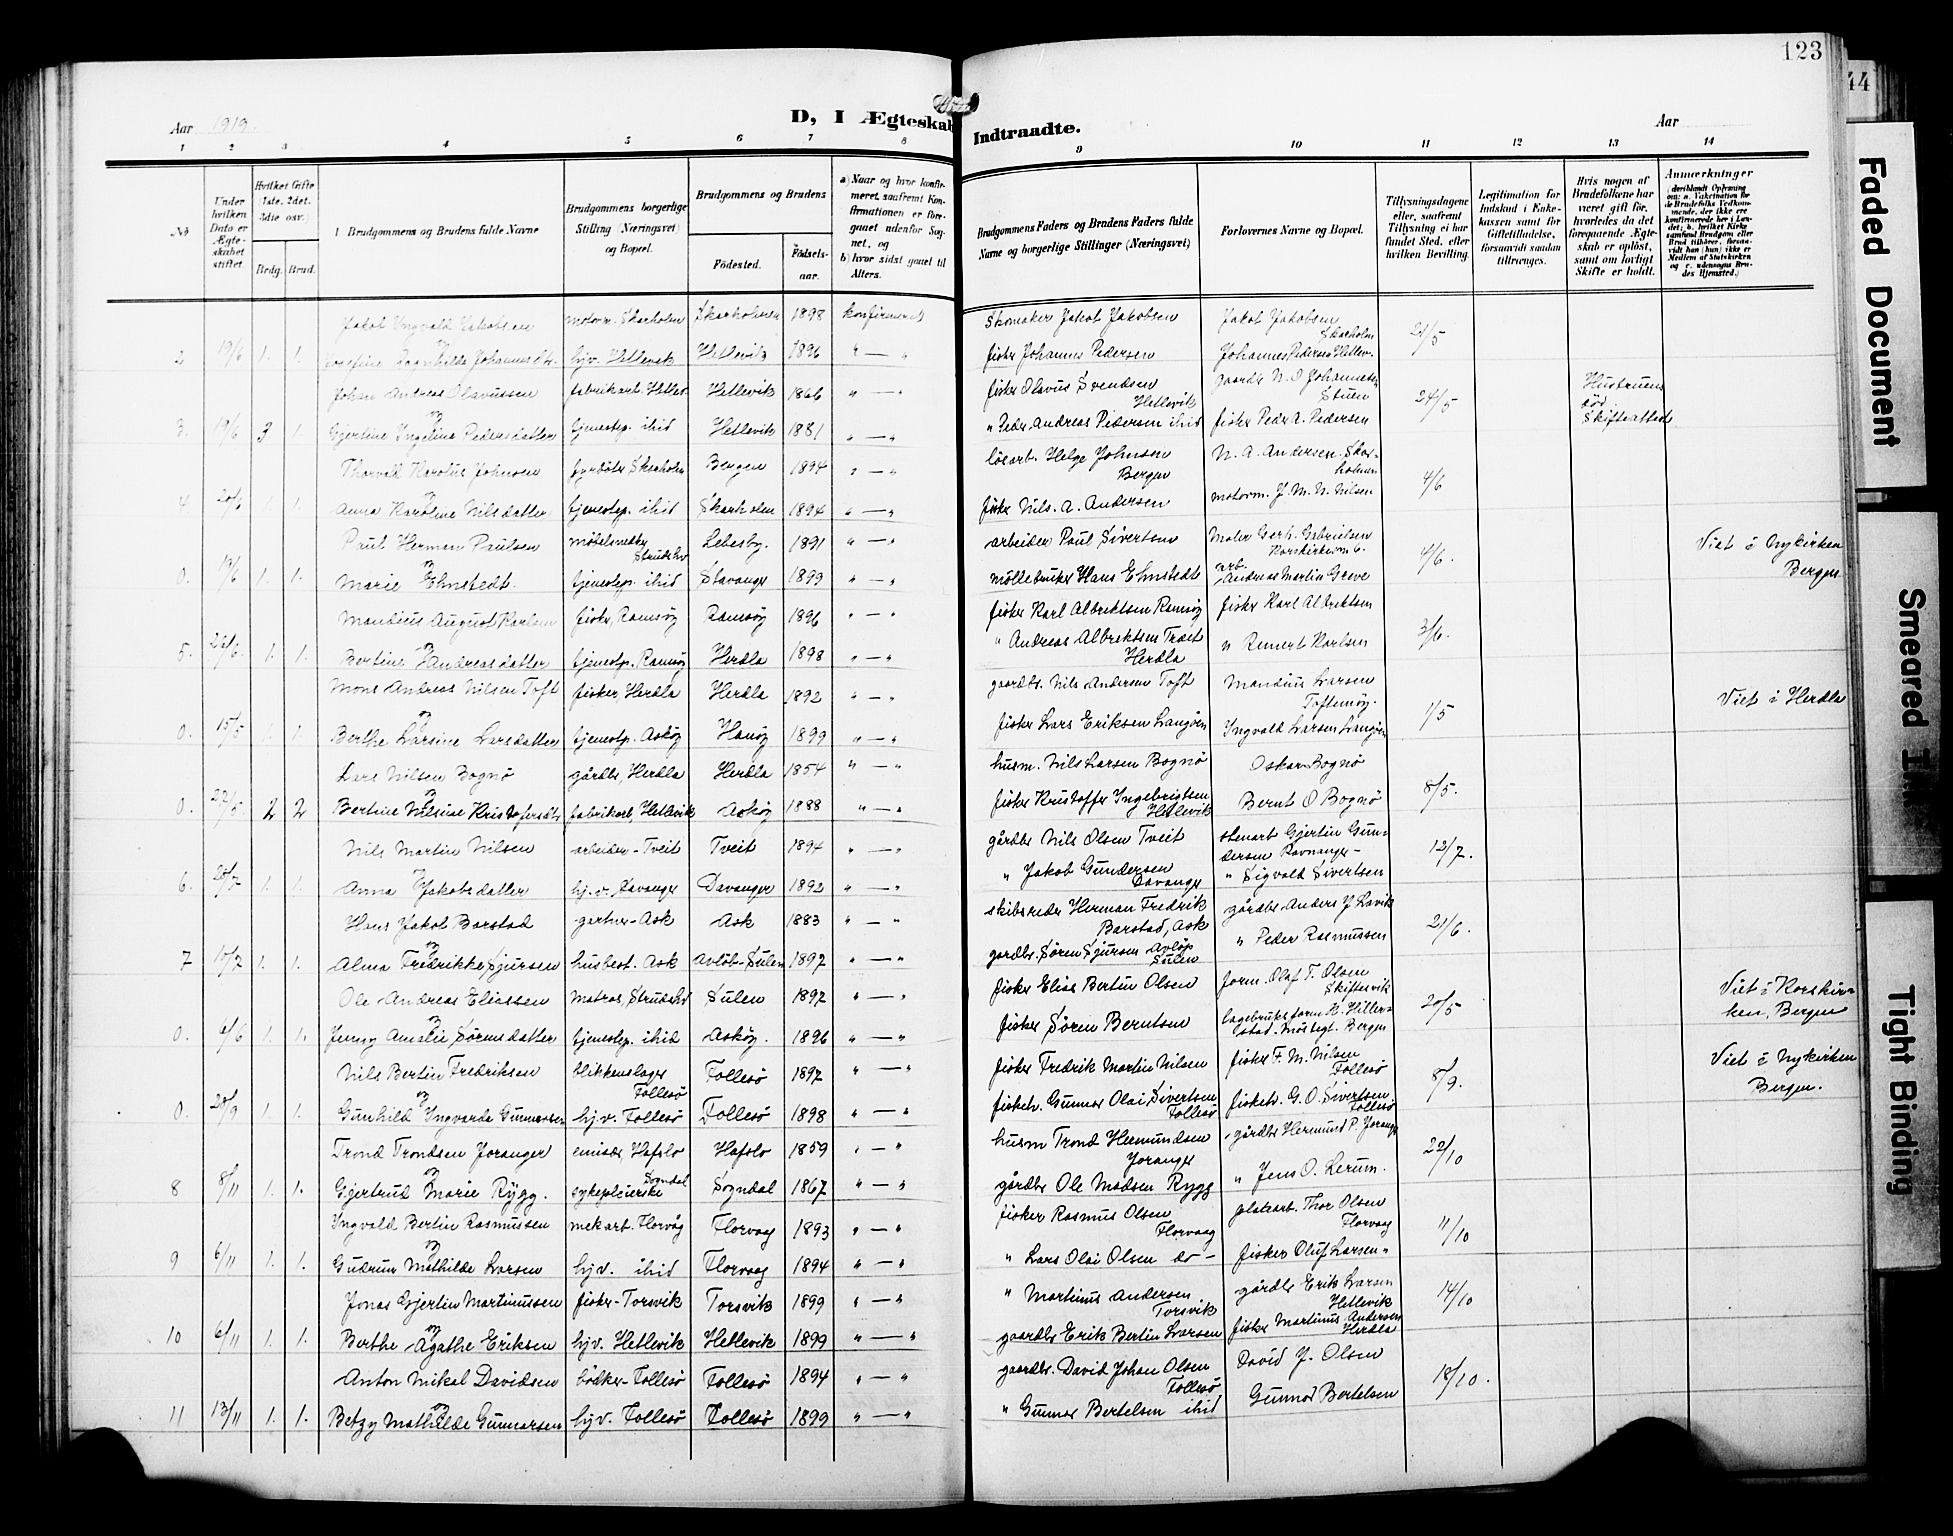 123
44
D, I Ægteskab Indtraadte.
Aar 1919. Aar
1 2 3 4 5 6 7 8 9 10 11 12 13 14
№
Under hvilken Dato er Ægteskabet stiftet.
Hvilket Gifte 1ste, 2det, 3die osv.)
Brdg. Brud.
Brudgommens og Brudens fulde Navne
Brudgommens borgerlige Stilling (Næringsvei) og Bopæl.
Brudgommens og Brudens
Fødested. Fødselsaar.
a) Naar og hvor konfirmeret, saafremt Konfirmationen er foregaaet udenfor Sognet, og
b) hvor sidst gaaet til Alters.
Brudgommens Faders og Brudens Faders fulde Navne og borgerlige Stillinger (Næringsvei)
Forlovernes Navne og Bopæl.
Tillysningsdagene eller, saafremt Tillysning ei har fundet Sted, efter hvilken Bevilling.
Legitimation for Indskud i Enkekassen samt for Giftetilladelse, forsaavidt saadan tiltrænges.
Hvis nogen af Brudefolkene har været gift før, hvorledes da det foregaaende Ægteskab er opløst, samt om lovligt Skifte er holdt.
Anmærkninger
Jakob Ingvald Jakobsen motorm. Skarholmen Skarholmen 1898 konfirmeret Skomaker Jakob Jakobsen Jakob Jakobsen Skarholm 21/5
2 19/6 1. 1. Josefine Ragnhilde Johannesdtr. hjv. Hetlevik Hetlevik 1896 " — " fisker Johannes Pedersen Johannes Pedersen Hetlev.
Johan Andreas Olavussen fabrikarb. Hetlev. Hetlevik 1866 " — " fisker Olavus Svendsen Hetlevik gaardbr N. O Johannesen Stuen 24/5 Hustruens død Skifteattest
3. 19/6 3 1. Gjertine Ingeline Pedersdatter tjenestep. ibid Hetlevik 1881 " — " " Peder Andreas Pedersen ibid fisker Peder A. Pedersen
Thorvald Karolus Johnsen fyrbøter Skarholm Bergen 1894 " — " løsarb. Helge Johnsen Bergen N. A. Andersen. Skarholmen 4/6
4 20/6 1. 1. Anna Karoline Nilsdatter tjenestep. ibid Skarholm 1894 " — " fisker Nils. A. Andersen motorm. J. M. N. Nilsen
Paul Herman Paulsen møbelsnedker Strudshv Lebesby. 1891 " — " arbeider Paul Sivertsen Maler Gerh. Gabrielsen Korskirkealm 6. 4/6. Viet i Nykirken Bergen
0. 19/6 1. 1. Marie Elmstedt. tjenestep. ibid Stavanger 1899 " — " møllebruker Hans Elmstedt arb. Andreas Martin Greve
Mandius August Karlsen fisker, Ramsøy Ramsøy 1896 " — " fisker Karl Albrektsen Ramsøy fisker Karl Albrektsen 3/6.
5. 26/6. 1. 1. Bertine Andreasdatter tjenestep. Ramsøy Herdla 1898 " — " " Andreas Albrektsen Træet Herdla " Remert Karlsen
Mons Andreas Nilsen Toft fisker, Herdla Herdla 1892 " — " gaardbr. Nils Andersen Toft Mandius Larsen Toftemøy. 1/5 Viet i Herdla
0. 15/5 1. 1. Berthe Larsine Larsdatter tjenestep. Askøy Hanøy 1899 " — " fisker Lars Eriksen Langøen Ingvald Larsen Langøen
Lars Nilsen Bognø gårdbr, Herdla Herdla 1854 " — " husm. Nils Larsen Bognø Oskar Bognø 8/5.
0. 22/5. 2 2 Bertine Nilsine Kristofersdtr fabrikarb, Hetlevik Askøy 1888 " — " fisker Kristoffer Ingebrigtsen Hetlevik Bernt O Bognø
Nils Martin Nilsen arbeider - Tveit Tveit 1894 " — " gårdbr Nils Olsen Tveit stenarb Gjertin Gundersen Ravnanger - 12/7.
6. 25/7 1. 1. Anna Jakobsdatter hj.v. Davanger Davanger 1892 " — " " Jakob Gundersen Davanger " Sigvald Sivertsen
Hans Jakob Barstad gartner - Ask Ask 1883 " — " skibsreder Herman Fredrik Barstad, Ask gårdbr Anders J Lavik 21/6.
7 15/7 1. 1. Alma Fredrikke Sjursen husbest. Ask Avløb-Sulen 1897 " — " gardbr. Søren Sjursen Avløp Sulen " Peder Rasmussen
Ole Andreas Eliassen matros, Strudshv Sulen 1897 " — " fisker Elias Bertin Olsen form. Olaf T. Olsen Skiftesvik 20/5 Viet i Korskirken, Bergen
0. 4/6 1. 1. Jenny Amalie Sørensdatter tjenestep. ibid Askøy. 1896 " — " fisker Søren Berntsen
Nils Bertin Fredriksen blikkenslager Follesø Follesø 1897 " — " fisker Fredrik Martin Nilsen fisker F. M. Nilsen Follesø 8/9. Viet i Nykirken Bergen.
0. 28/9 1. 1. Gunhild Ingvarda Gunnarsen hj.v. Follesø Follesø 1898 " — " fiskeh. Gunnar Olai Sivertsen Follesø fiskeh. G. O. Sivertsen Follesø
Trond Trondsen Joranger emissær, Hafslo Hafslo 1859 " — " husm Trond Hermundsen Joranger gårdbr Hermund P. Joranger 22/10
8 8/11 1. 1. Gjertrud Marie Rygg. sykepleierske Sogndal Sogndal 1867 " — " gårdbr Ole Madsen Rygg " Jens O. Lerum.
Ingvald Bertin Rasmussen mek arb. Florvåg Florvaag 1893 " — " fisker Rasmus Olsen Florvaag platearb. Thor Olsen Florvaag 11/10
9 6/11 1. 1. Gudrun Mathilde Larsen hjv. ibid Florvaag 1894 " — " " Lars Olai Olsen do - fisker Oluf Larsen "
Jonas Gjertin Martinussen fisker - Torsvik Torsvik 1899 " — " " Martinus Andersen Torsvik gårdbr Erik Larsen Hetlevik 14/10
10 6/11 1. 1. Berthe Agathe Eriksen hjv. Hetlevik Hetlevik 1899 " — " gaardbr Erik Bertin Larsen fisker Martinus Andersen Herdla
Anton Mikal Davidsen bødker - Follesø Follesø 1894 " — " gaardbr. David Johan Olsen Follesø David J. Olsen 18/10.
11 13/11 1. 1. Betzy Mathilde Gunnarsen hjv. Follesø Follesø 1899 " — " " Gunnar Bertelsen ibid Gunnar Bertelsen
Faded Document
Smeared Ink
Tight Binding